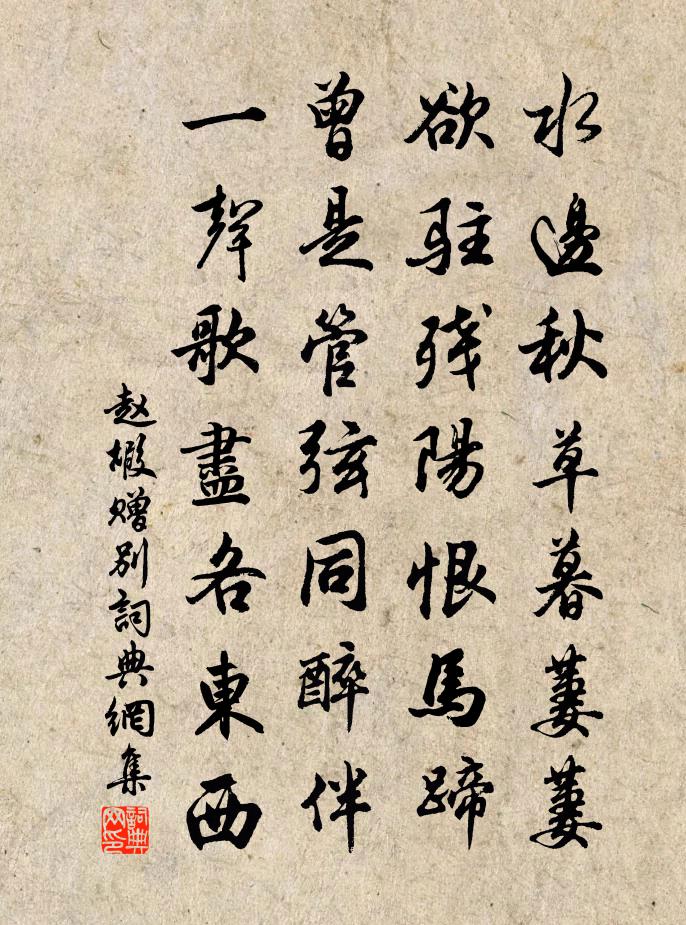 水邊秋草暮萋萋
欲駐残陽恨馬蹄
曾是管弦同醉伴
一聲歌盡各東西
赵嘏贈别詞典網集
詞典网印